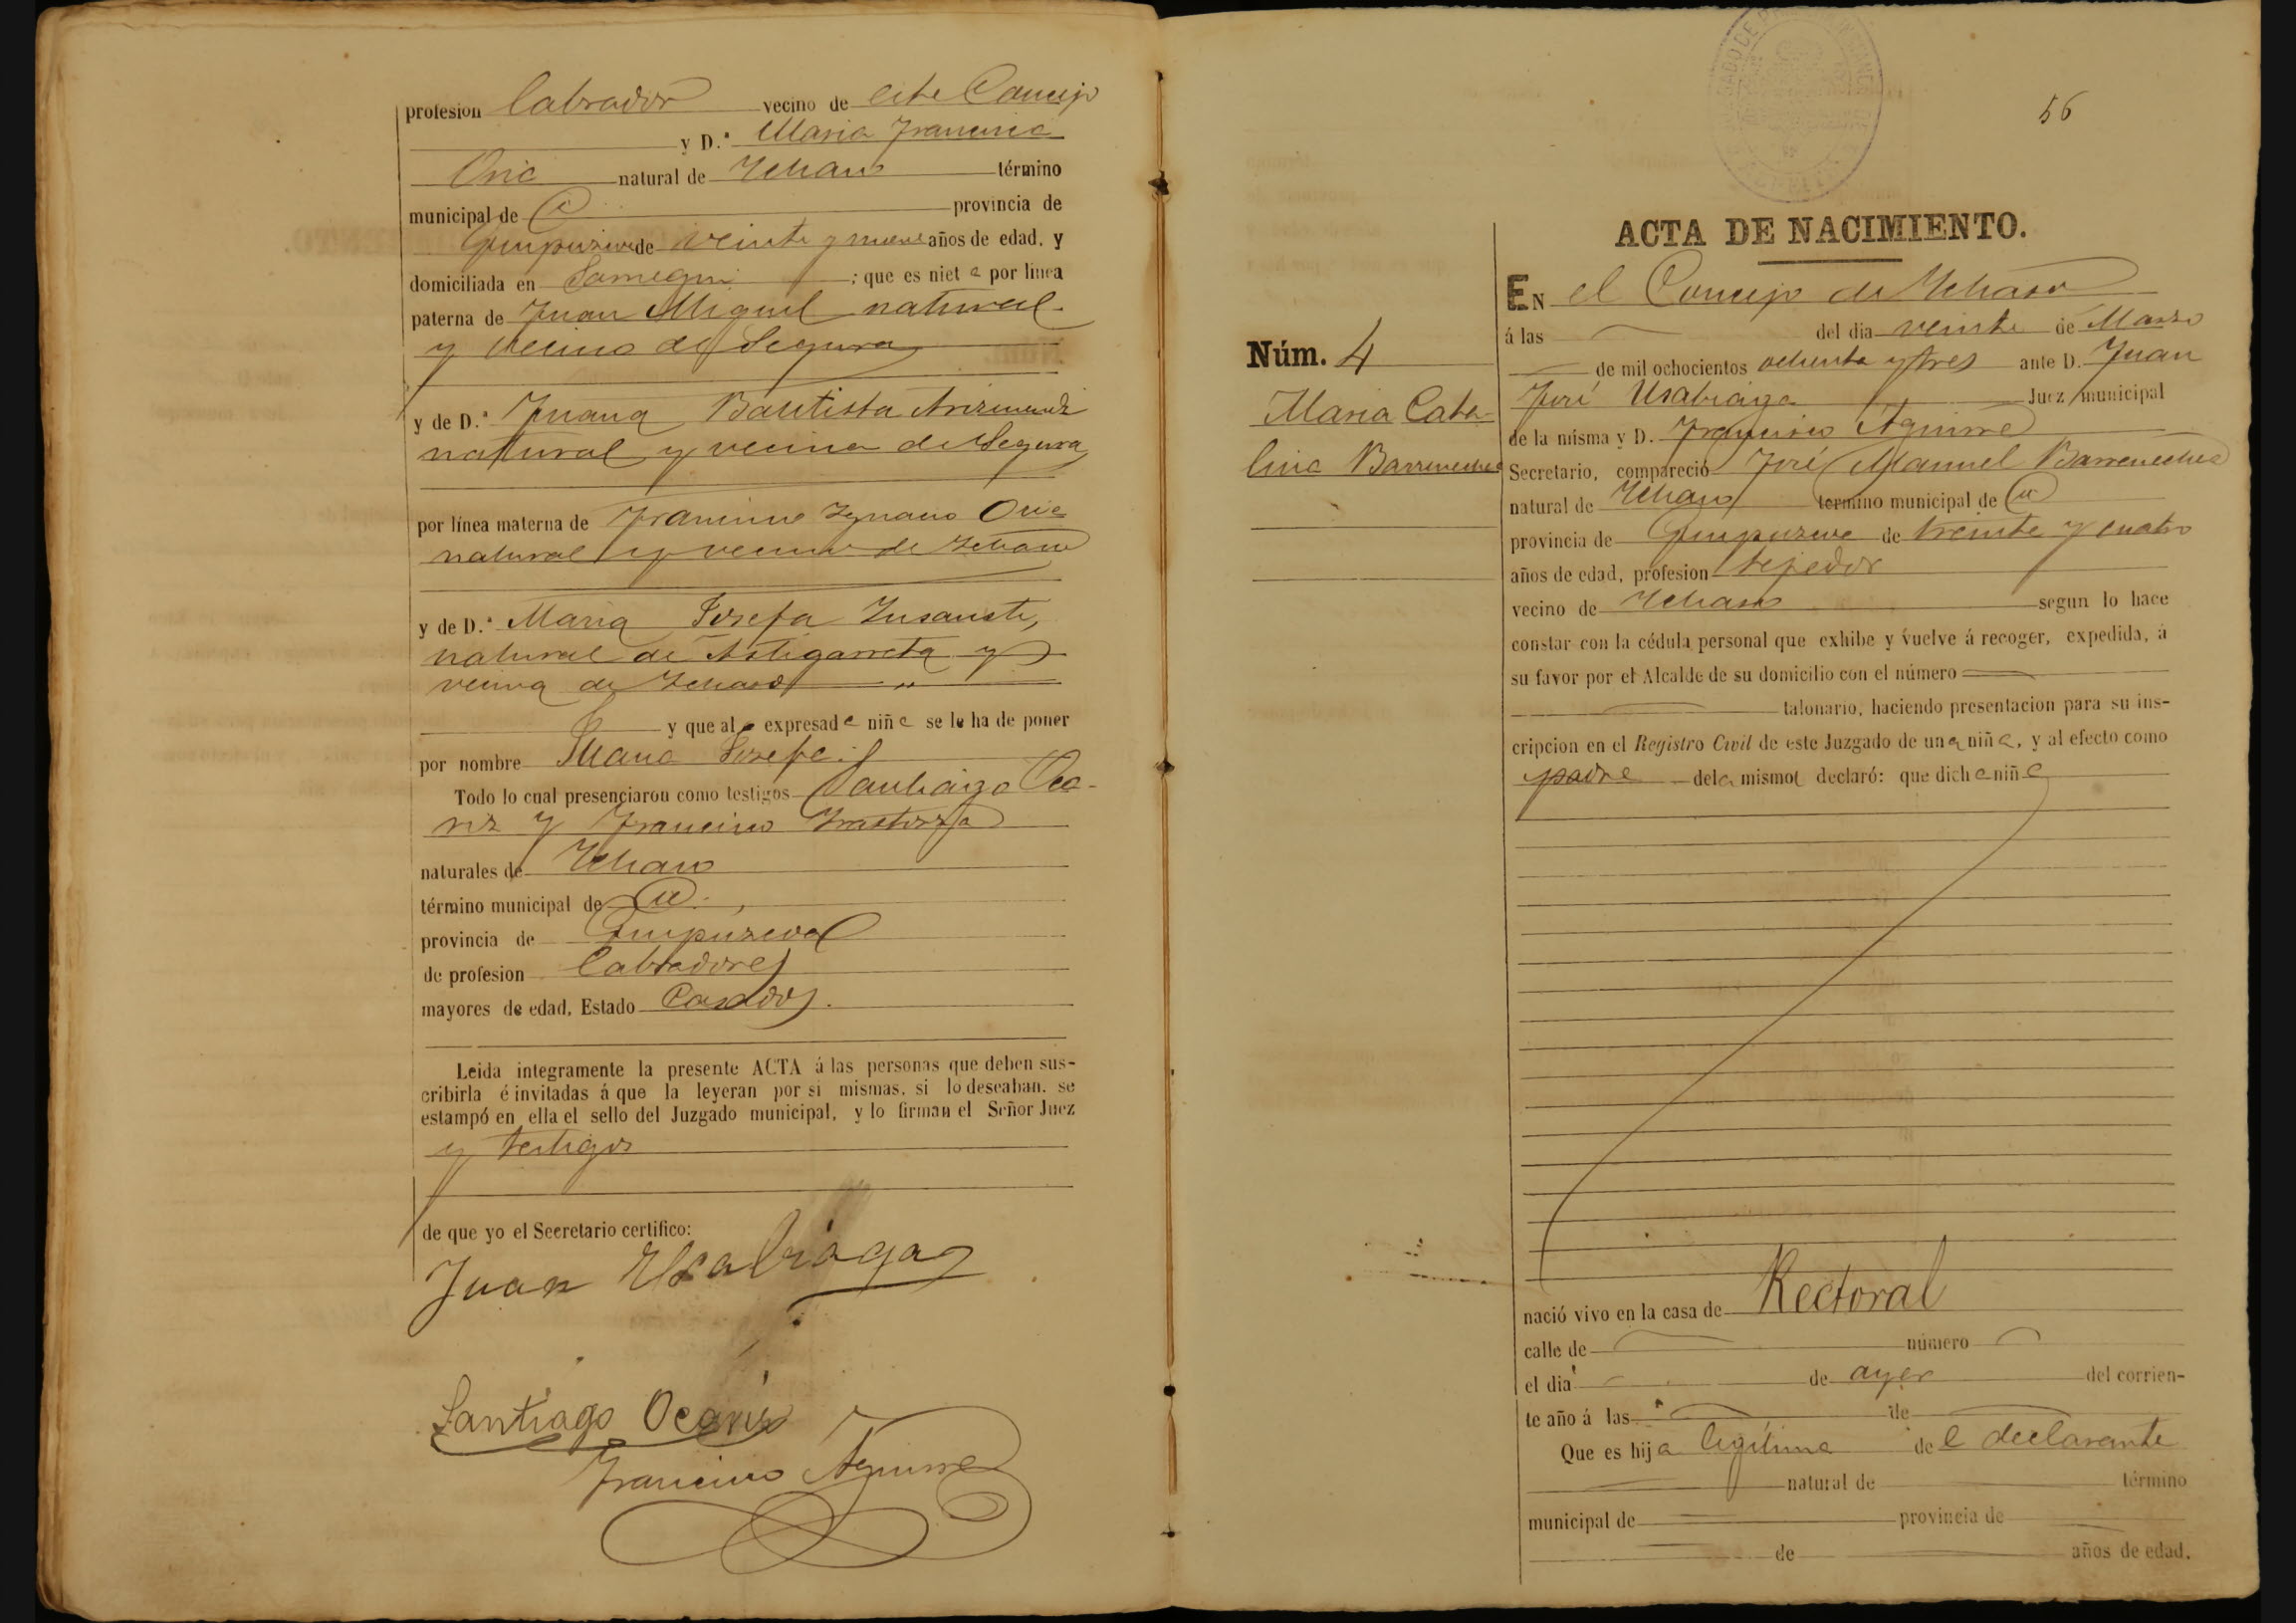 profesion labrador vecino de este Concejo
y D.ª Maria Francisca
Oria natural de Ichaso término
municipal de id provincia de
Guipuzcoa de veinte y nueve años de edad, y
domiciliada en ; que es niet a por línea
paterna de Juan Miguel natural
y vecino de Segura
y de D.ª Juana Bautista Arizmendi
natural y vecina de Segura
por línea materna de Francisco Ignacio Oria
natural y vecino de Ichaso
y de D.ª Maria Josefa
natural de Astigarreta y
vecina de Ichaso "
y que al a expresad a niñ a se le ha de poner
por nombre Juana Josefa.
Todo lo cual presenciaron como testigos Santiago Oca-
riz y Francisco Irastorza
naturales de Ichaso
término municipal de id.
provincia de Guipuzcoa
de profesion labradores
mayores de edad, Estado Casados.
Leida integramente la presente ACTA á las personas que deben sus-
cribirla é invitadas á que la leyeran por si mismas, si lo deseaban, se
estampó en ella el sello del Juzgado municipal, y lo firman el Señor Juez
y testigos
de que yo el Secretario certifico:
Juan Usabiaga
Santiago Ocariz
Francisco Aguirre
56
ACTA DE NACIMIENTO.
EN el Concejo de Ichaso
á las del dia veinte de Marzo
de mil ochocientos ochenta y tres ante D. Juan
José Usabiaga Juez municipal
de la misma y D. Francisco Aguirre
Secretario, compareció José Manuel Barrenechea
natural de Ichaso termino municipal de id
provincia de Guipuzcoa de treinta y cuatro
años de edad, profesion tejedor
vecino de Ichaso segun lo hace
constar con la cédula personal que exhibe y vuelve á recoger, expedida, á
su favor por el Alcalde de su domicilio con el número
talonario, haciendo presentacion para su ins-
cripcion en el Registro Civil de este Juzgado de una niña, y al efecto como
padre de la misma declaró: que dich a niñ a
Núm. 4
Maria Cata-
lina Barrenechea
nació vivo en la casa de Rectoral
calle de número
el dia de ayer del corrien-
te año á las de
Que es hij a legitima de l declarante
natural de término
municipal de provincia de
de años de edad,